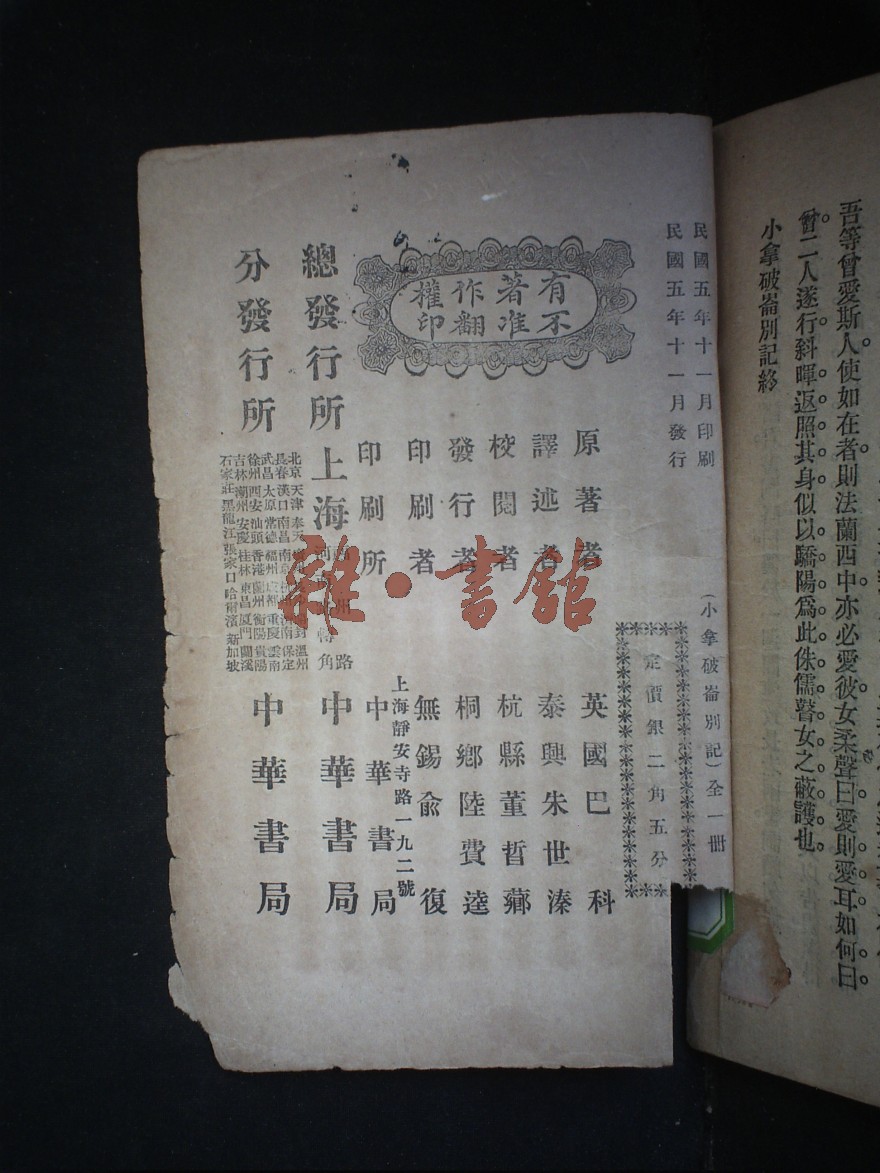 吾等曾愛斯人使如在者則法蘭西中亦必愛彼女柔聲曰愛則愛耳如何曰
曾二人遂行斜暉返照其身似以驕陽爲此侏儒瞽女之蔽護也
小拿破崙別記終
民國五年十一月印刷
民國五年十一月發行
(小拿破崙別記)全一冊
定價銀二角五分
有著作權
不准翻印
原著者 英國巴科
譯述者 泰興朱世溱
校閱者 杭縣董晢薌
發行者 桐鄉陸費逵
印刷者 無錫俞復
印刷所 上海靜安寺路一九二號 中華書局
總發行所 上海 轉角 中華書局
分發行所 中華書局
北京 天津 奉天 溫州
長春 漢口 南昌 保定
武昌 太原 常德 福州 成都 重慶 雲南
徐州 西安 汕頭 香港 蘭州 衡陽 貴陽
吉林 潮州 安慶 桂林 東昌 廈門 蘭溪
石家莊 黑龍江 張家口 哈爾濱 新加坡
雜·書館